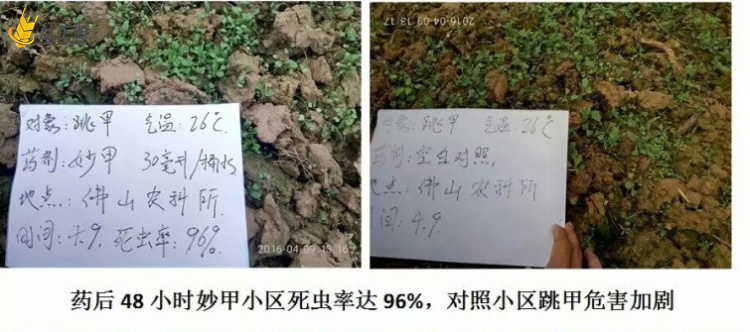 对象:跳甲 气温:26℃
药剂:妙甲 30毫升/桶水
地点:佛山农科所
时间:4.9. 死虫率:96%
2016-04-09 13:16
2016-04-09 13:17
对象:跳甲 气温:26℃
药剂:空白对照,
地点:佛山农科所
时间:4.9.
药后 48 小时妙甲小区死虫率达 96%,对照小区跳甲危害加剧